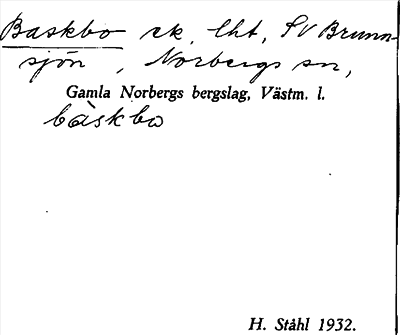 Baskbo ek. lht, SV Brunn-
sjön, Norbergs sn,
Gamla Norbergs bergslag, Västm. l.
bàskbo
H. Ståhl 1932.